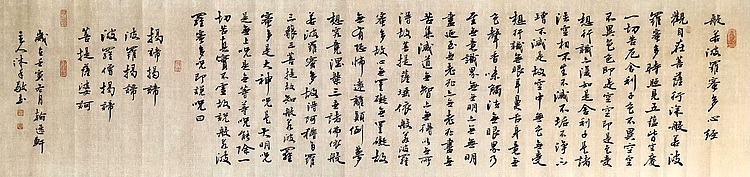 般若波羅蜜多心經
觀自在菩薩行深般若波
羅蜜多時照見五蘊皆空度
一切苦厄舍利子色不異空空
不異色色即是空空即是色受
想行識亦復如是舍利子是諸
法空相不生不滅不垢不淨不
增不減是故空中無色無受
想行識無眼耳鼻舌身意無
色聲香味觸法無眼界乃
至無意識界無無明亦無無明
盡乃至無老死亦無老死盡無
苦集滅道無智亦無得以無所
得故菩提薩埵依般若波羅
蜜多故心無罣礙無罣礙故
無有恐怖遠離顛倒夢
想究竟涅槃三世諸佛依般
若波羅蜜多故得阿耨多羅
三藐三菩提故知般若波羅
蜜多是大神咒是大明咒
是無上咒是無等等咒能除一
切苦真實不虛故說般若波
羅蜜多咒即說咒曰
揭諦揭諦
波羅揭諦
波羅僧揭諦
菩提薩婆訶